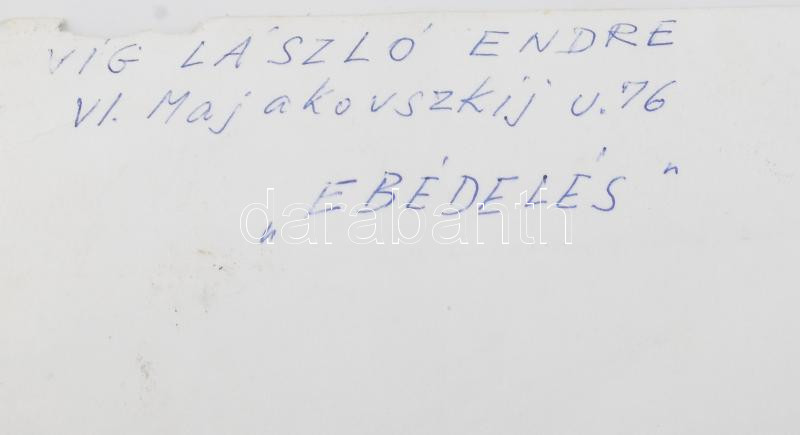 VÍG LÁSZLÓ ENDRE
VI. Majakovszkij u. 76
„EBÉDELÉS"
darabanth